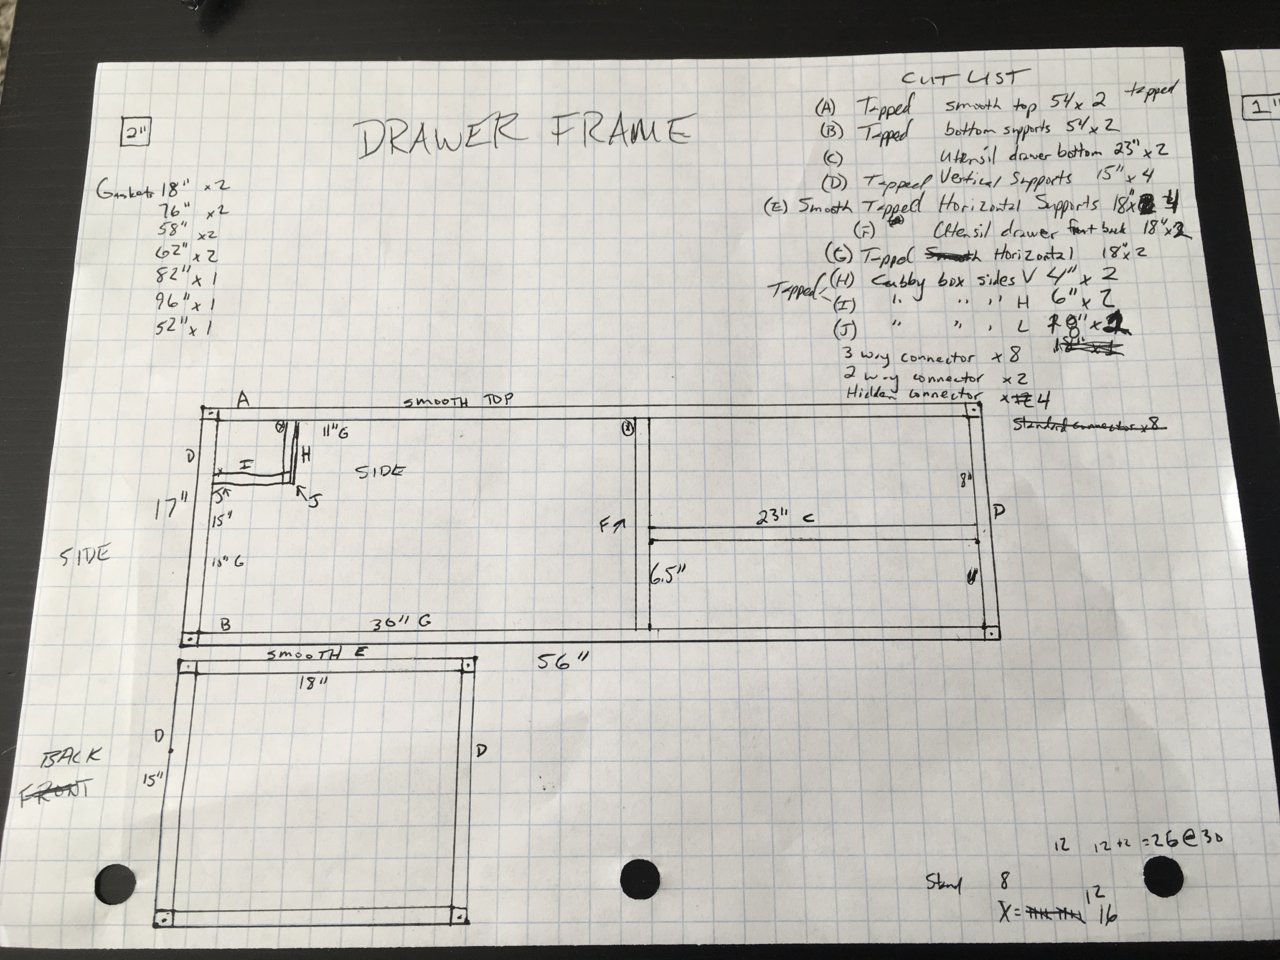 CUT LIST
(A) Tapped smooth top 54 x 2 tapped
(B) Tapped bottom supports 54 x 2
(C) Utensil drawer bottom 23" x 2
(D) Tapped Vertical Supports 15" x 4
(E) Smooth Tapped Horizontal Supports 18" x 4
(F) Utensil drawer front back 18" x 2
(G) Tapped Smooth Horizontal 18" x 2
Tapped (H) Cubby box sides V 4" x 2
(I) " " " H 6" x 2
(J) " " " L
18" x 1
3 way connector x 8
2 way connector x 2
Hidden connector x 4
Standard connector x 8
1"
2"
DRAWER FRAME
Gaskets 18" x 2
76" x 2
58" x 2
62" x 2
82" x 1
96" x 1
52" x 1
A SMOOTH TOP
D
I
H
11" G
SIDE
J
5"
15"
17"
15" G
SIDE
F
23" C
8"
D
6.5"
B 36" G
56"
SMOOTH E
18"
D
D
15"
BACK
FRONT
12 12+2 = 26 @ 30
Stand 8
12
X = 16